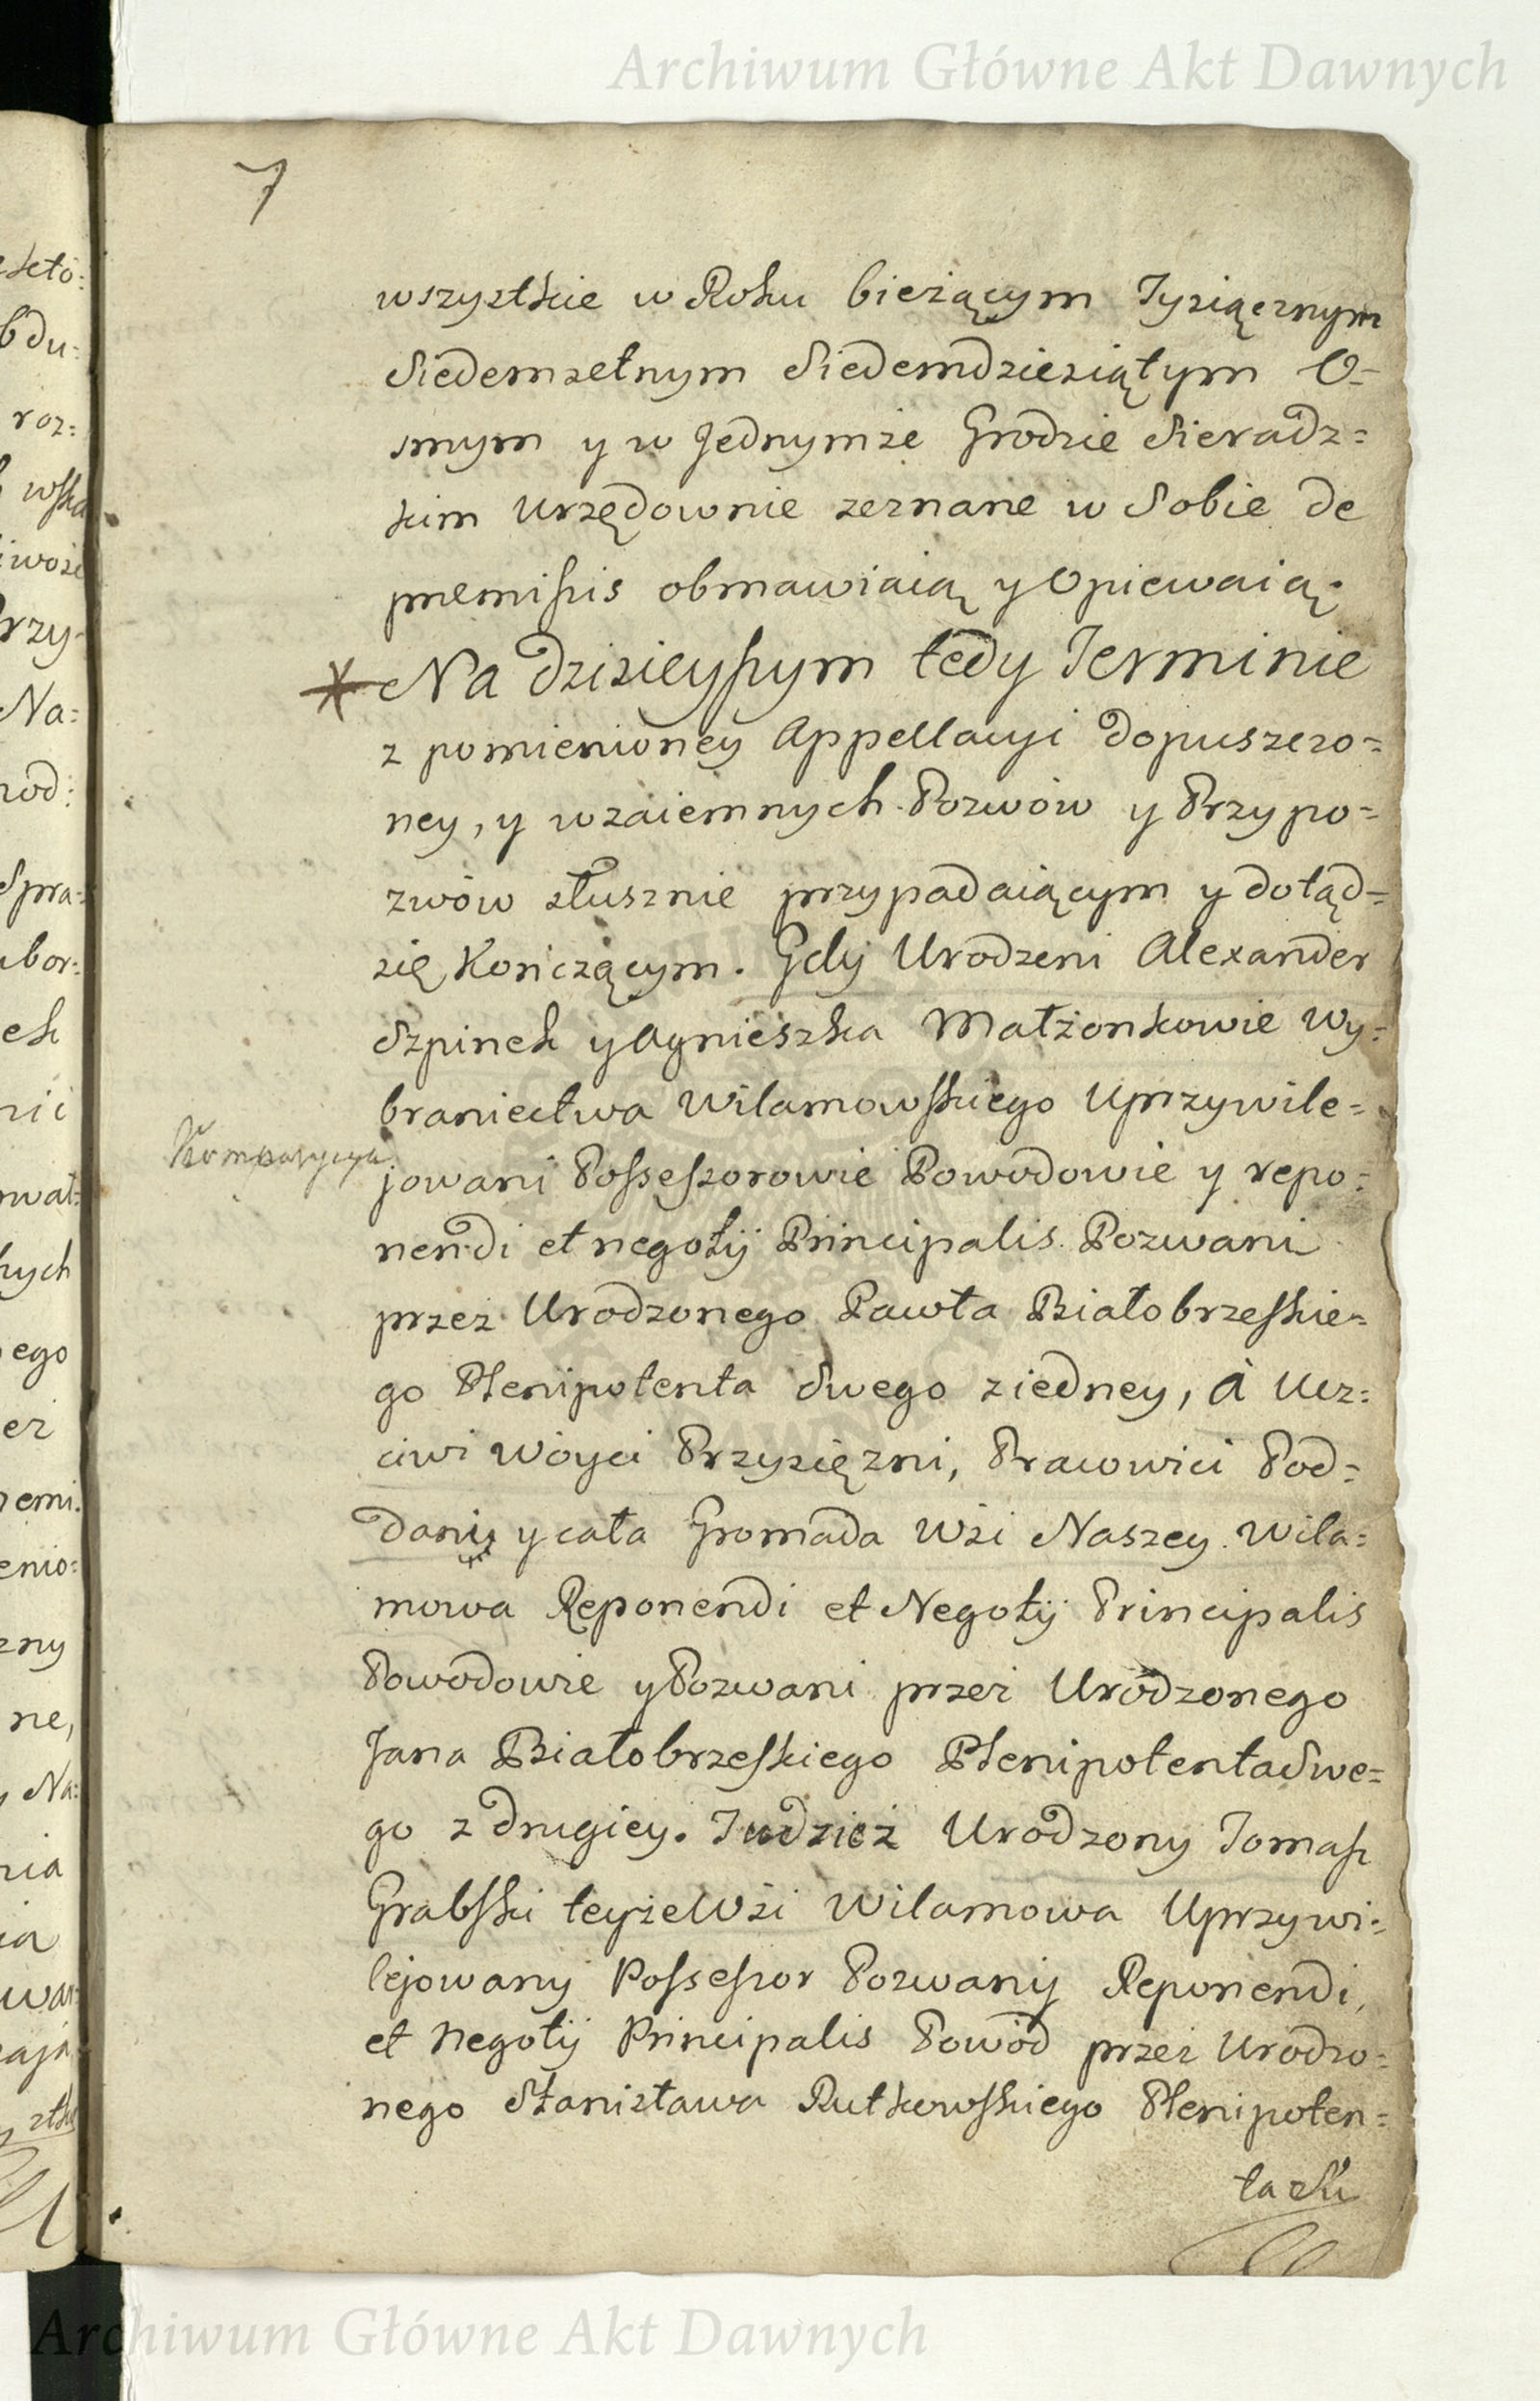 Archiwum Główne Akt Dawnych
7
wszystkie w Roku bieżącym Tysiącznym
Siedemsetnym Siedemdziesiątym O=
smym y w Jednymże Grodzie Sieradz=
kim Urzędownie zeznane w Sobie de
præmissis obmawiaią y Opiewaią.
* Na dzisieyszym tedy Terminie
z pomienioney Appellacyi dopuszczo=
ney, y wzaiemnych Pozwów y Przypo=
zwów słusznie przypadaiącym y dotąd=
się Kończącym. Gdy Urodzeni Alexander
Szpinek y Agnieszka Małżonkowie Wy=
braniectwa Wilamowskiego Uprzywile=
Komparycya
jowani Possessorowie Powodowie y repo=
nendi et negotij Principalis Pozwani
przez Urodzonego Pawła Białobrzeskie=
go Plenipotenta Swego z iedney, à Ucz=
ciwi Woyci Przysiężni, Pracowici Pod=
dani y cała Gromada Wsi Naszey Wila=
mowa Reponendi et Negotij Principalis
Powodowie y Pozwani przez Urodzonego
Jana Białobrzeskiego Plenipotenta Swe=
go z drugiey. Tudzież Urodzony Tomasz
Grabski teyże Wsi Wilamowa Uprzywi=
lejowany Possessor Pozwany Reponendi,
et Negotij Principalis Powód przez Urodzo=
nego Stanisława Rutkowskiego Plenipoten=
ta
Archiwum Główne Akt Dawnych